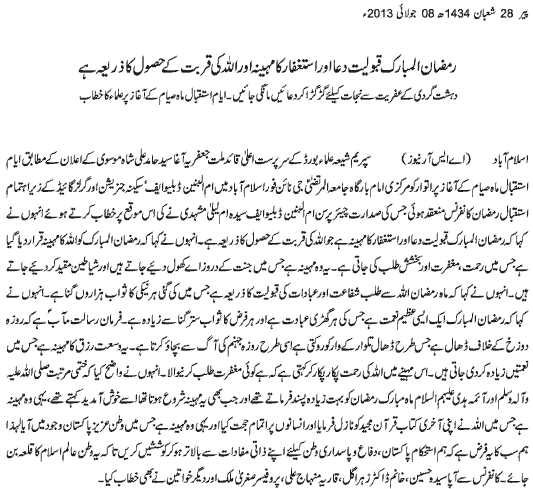 پیر 28 شعبان 1434ھ 08 جولائی 2013ء
رمضان المبارک قبولیت دعا اور استغفار کا مہینہ اور اللہ کی قربت کے حصول کا ذریعہ ہے
دہشت گردی کے عفریت سے نجات کیلئے گڑگڑا کر دعائیں مانگی جائیں۔ ایام استقبال ماہ صیام کے آغاز پر علماء کا خطاب
اسلام آباد (اے ایس آر نیوز) سپریم شیعہ علماء بورڈ کے سرپرست اعلیٰ قائد ملت جعفریہ آغا سید حامد علی شاہ موسوی کے اعلان کے مطابق ایام
استقبال ماہ صیام کے آغاز پر اتوار کو مرکزی امام بارگاہ جامعۃ المرتضیٰ جی نائن فور اسلام آباد میں ام البنین ڈبلیو ایف، سکینہ جنریشن اور گرلز گائیڈ کے زیر اہتمام
استقبال رمضان کانفرنس منعقد ہوئی جس کی صدارت چیئر پرسن ام البنین ڈبلیو ایف سیدہ ام لیلیٰ مشہدی نے کی اس موقع پر خطاب کرتے ہوئے انہوں نے
کہا کہ رمضان المبارک قبولیت دعا اور استغفار کا مہینہ ہے جو اللہ کی قربت کے حصول کا ذریعہ ہے۔ انہوں نے کہا کہ رمضان المبارک کو اللہ کا مہینہ قرار دیا گیا
ہے جس میں رحمت، مغفرت اور بخشش طلب کی جاتی ہے۔ یہ وہ مہینہ ہے جس میں جنت کے دروازے کھول دیئے جاتے ہیں اور شیاطین مقید کر دیئے جاتے
ہیں۔ انہوں نے کہا کہ ماہ رمضان اللہ سے طلب شفاعت اور عبادات کی قبولیت کا ذریعہ ہے جس میں کی گئی ہر نیکی کا ثواب ہزاروں گنا ہے۔ انہوں نے
کہا کہ رمضان المبارک ایک ایسی عظیم نعمت ہے جس کی ہر گھڑی عبادت ہے اور ہر فرض کا ثواب ستر گنا سے زیادہ ہے۔ فرمان رسالت مآب ہے کہ روزہ
دوزخ کے خلاف ڈھال ہے جس طرح ڈھال تلوار کے وار کو روکتی ہے اسی طرح روزہ جہنم کی آگ سے بچاؤ کرتا ہے۔ یہ وسعت رزق کا مہینہ ہے جس میں
نعمتیں زیادہ کر دی جاتی ہیں۔ اس مہینے میں اللہ کی رحمت پکار پکار کر کہتی ہے کہ ہے کوئی مغفرت طلب کرنیوالا۔ انہوں نے واضح کیا کہ ختمی مرتبت صلی اللہ علیہ
وآلہ وسلم اور آئمہ ہدیٰ علیہم السلام ماہ مبارک رمضان کو بہت زیادہ پسند فرماتے تھے اور جب بھی یہ مہینہ شروع ہوتا تھا اسے خوش آمدید کہتے تھے، یہی وہ مہینہ
ہے جس میں اللہ نے اپنی آخری کتاب قرآن مجید کو نازل فرمایا اور انسانوں پر اتمام حجت کیا اور یہی وہ مہینہ ہے جس میں وطن عزیز پاکستان وجود میں آیا لہذا
ہم سب کا یہ فرض ہے کہ ہم استحکام پاکستان، دفاع و پاسداری وطن کیلئے اپنے ذاتی مفادات سے بالاتر ہو کر کوششیں کریں تا کہ یہ وطن عالم اسلام کا قلعہ بن
جائے۔ کانفرنس سے آپا سیدہ حسین، خانم ڈاکٹر زہرا گل، قاریہ منہاج علی، پروفیسر صغریٰ ملک اور دیگر خواتین نے بھی خطاب کیا۔